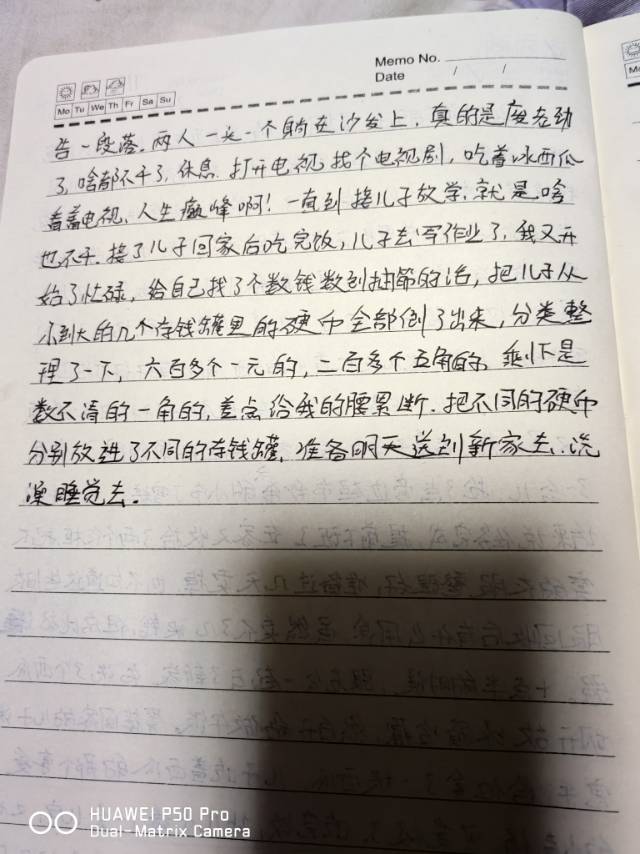 Memo No.
Date / /
Mo Tu We Th Fr Sa Su
告一段落。两人一头一个躺在沙发上,真的是废老劲
了,啥都不干了,休息。打开电视找个电视剧,吃着冰西瓜
看着电视,人生巅峰啊!一直到接儿子放学,就是啥
也不干。接了儿子回家后吃完饭,儿子去写作业了,我又开
始了忙碌,给自己找了个数钱数到抽筋的活,把儿子从
小到大的几个存钱罐里的硬币全部倒了出来,分类整
理了一下,六百多个一元的,二百多个五角的,剩下是
数不清的一角的,差点给我的腰累断。把不同的硬币
分别放进了不同的存钱罐,准备明天送到新家去。洗
澡睡觉去。
HUAWEI P50 Pro
Dual-Matrix Camera